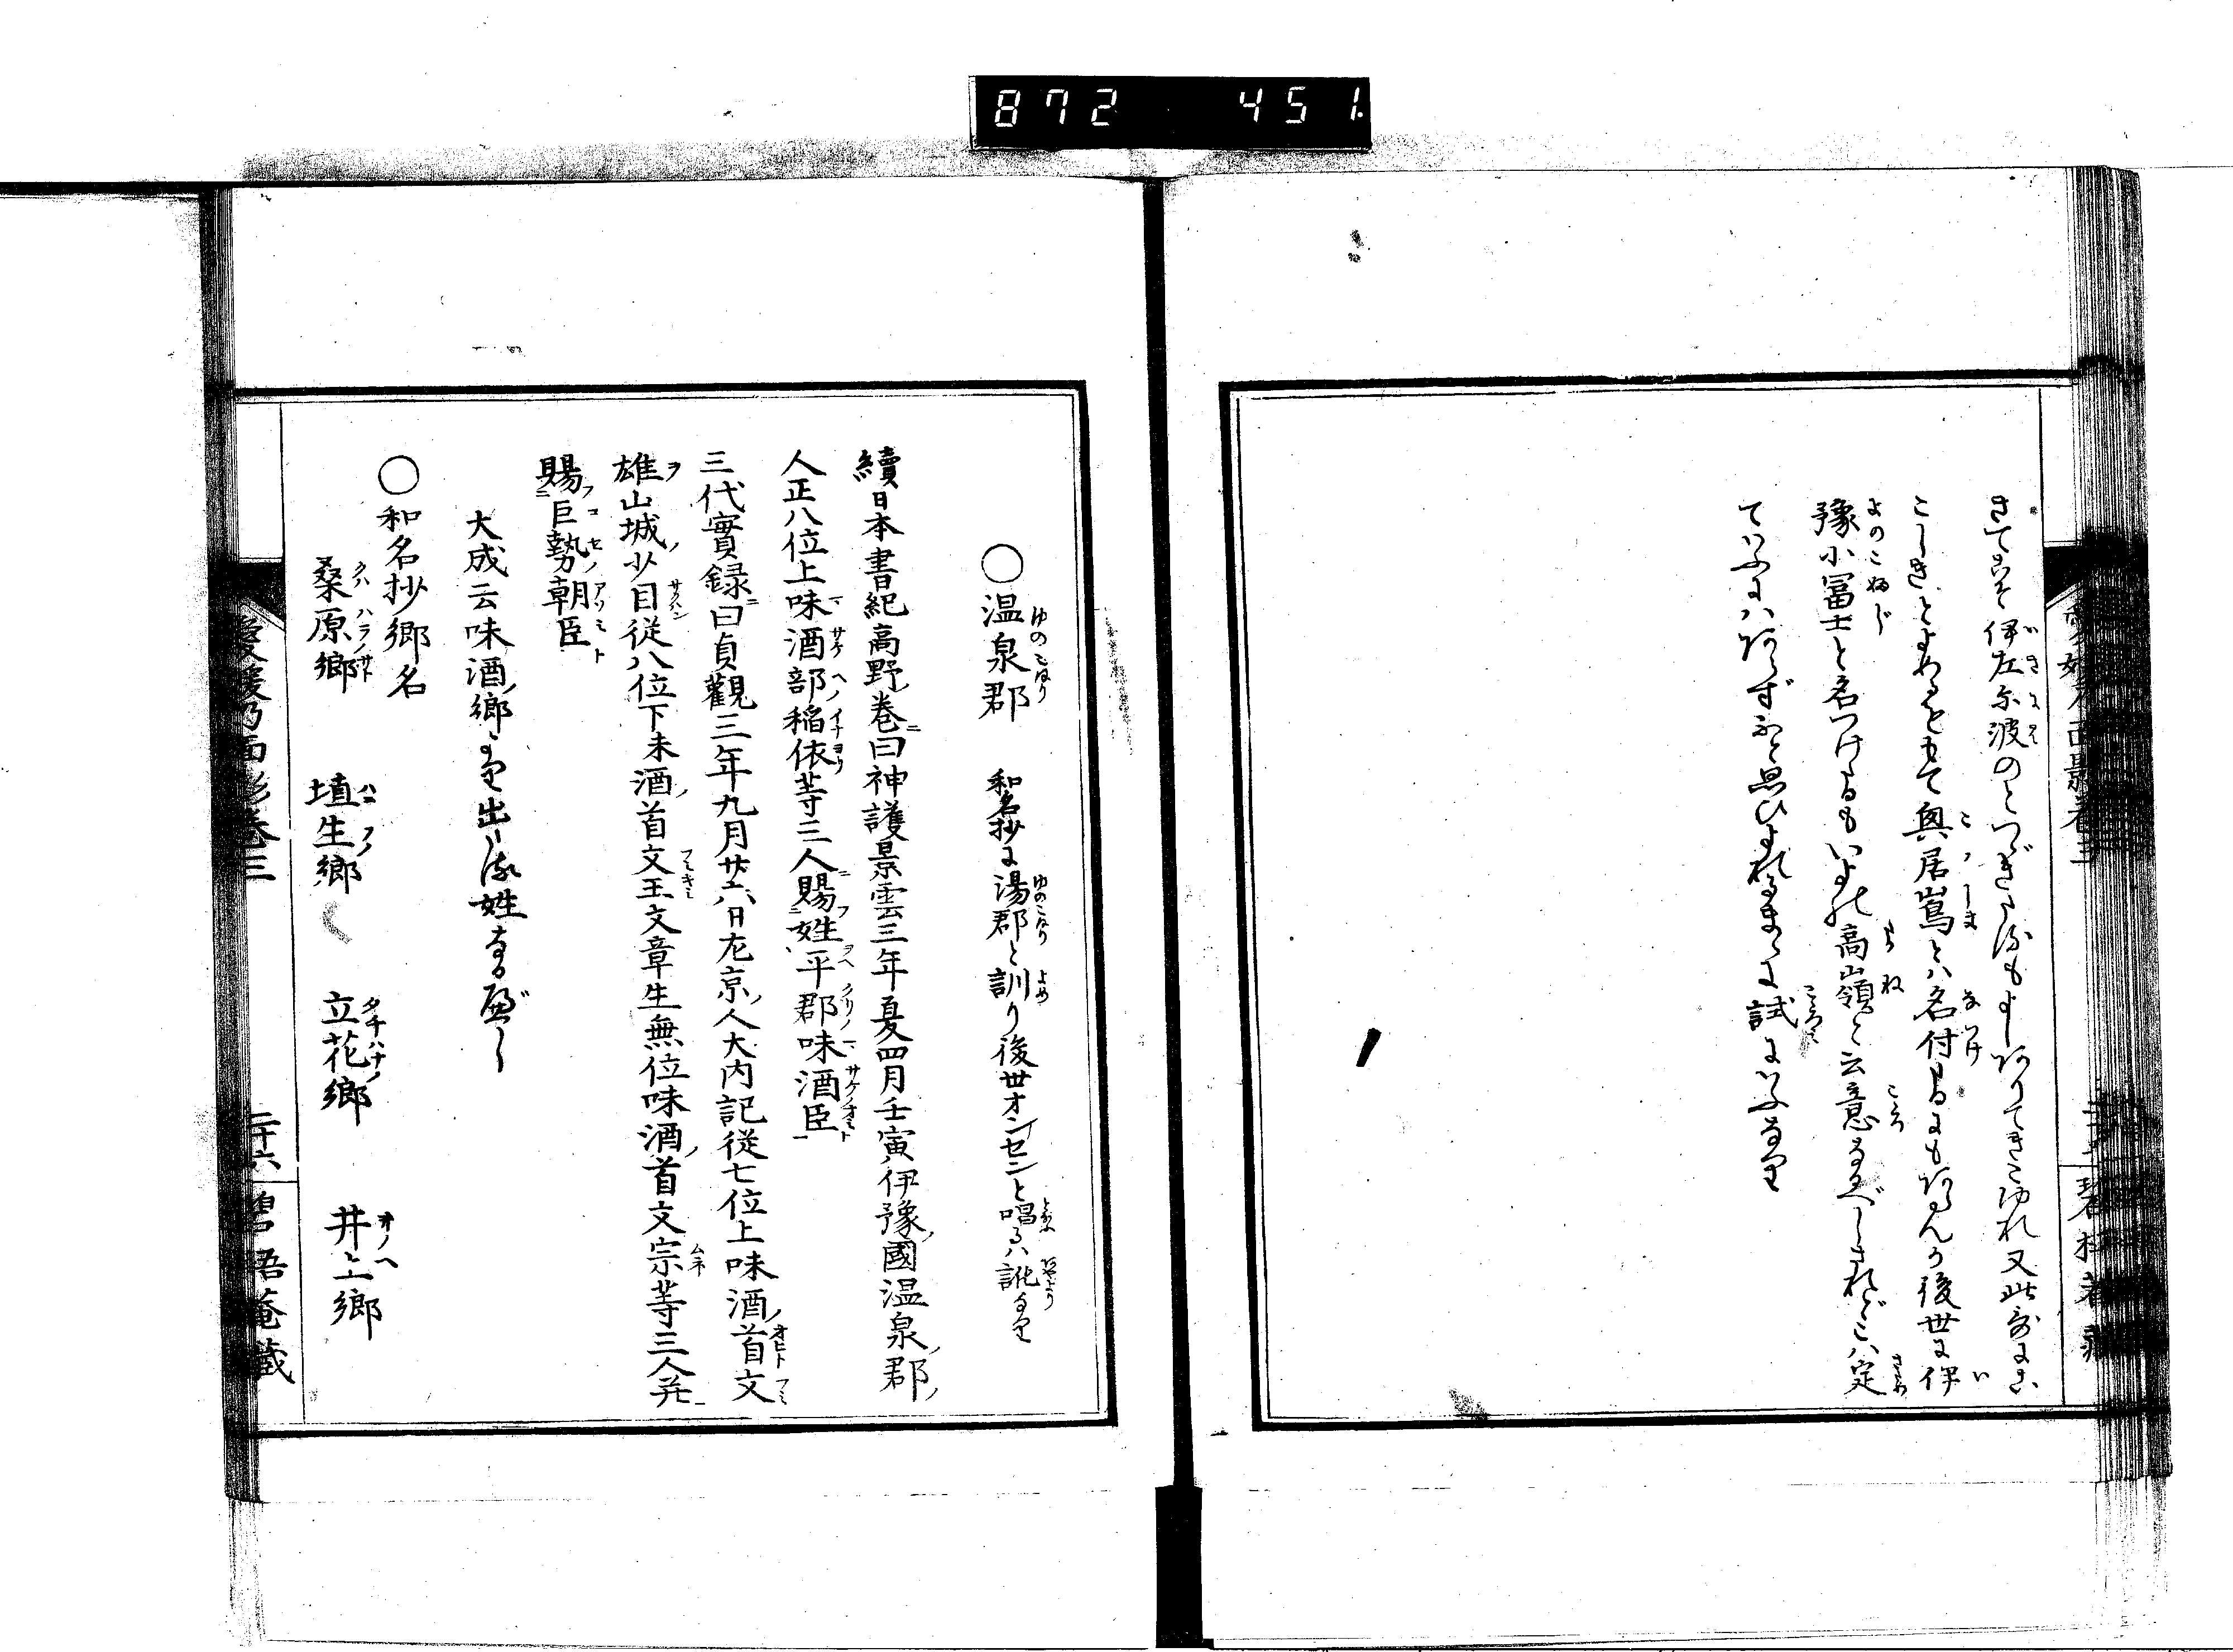 872 451
さてこそ伊左尓波のとつぎたるもよしありてきこゆれ又此歌にこ
こしきとよめるをもて興居嶌とハ名付たるにもあらんか後世に伊
豫小冨士と名つけたるもいよの高嶺と云意なるべしされどこハ定
ていふにハあらずふと思ひよれるまゝに試にいふなり
○温泉郡 和名抄に湯郡と訓り後世オンセンと唱るハ訛なり
續日本書紀高野巻曰神護景雲三年夏四月壬寅伊豫國温泉郡
人正八位上味酒部稲依等三人賜姓平郡味酒臣
三代實録曰貞觀三年九月廿六日左京人大内記従七位上味酒首文
雄山城少目従八位下未酒首文主文章生無位味酒首文宗等三人并
賜巨勢朝臣
大成云味酒郷より出たる姓なるべし
○和名抄郷名
桑原郷 埴生郷 立花郷 井上郷
愛媛乃面影巻三 二十六 碧梧菴藏